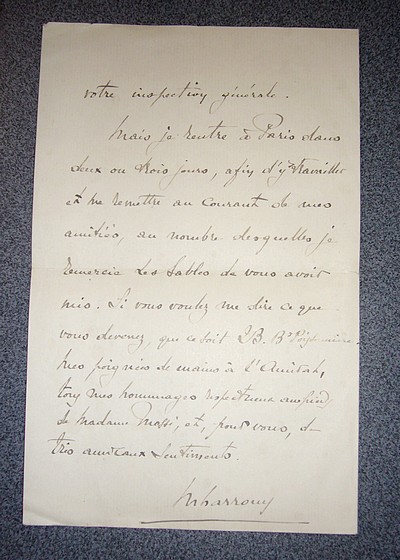 votre inspection générale.
Mais je rentre à Paris dans
deux ou trois jours, afin d'y travailler
et me remettre au courant de mes
amitiés, au nombre desquelles je
remercie Les Sables de vous avoir
mis. Si vous voulez me dire ce que
vous devenez, que ce soit 2B. Bd
Mes poignées de mains à l'Amiral,
tous mes hommages respectueux aux pieds
de Madame et, pour vous, de
très amicaux sentiments.